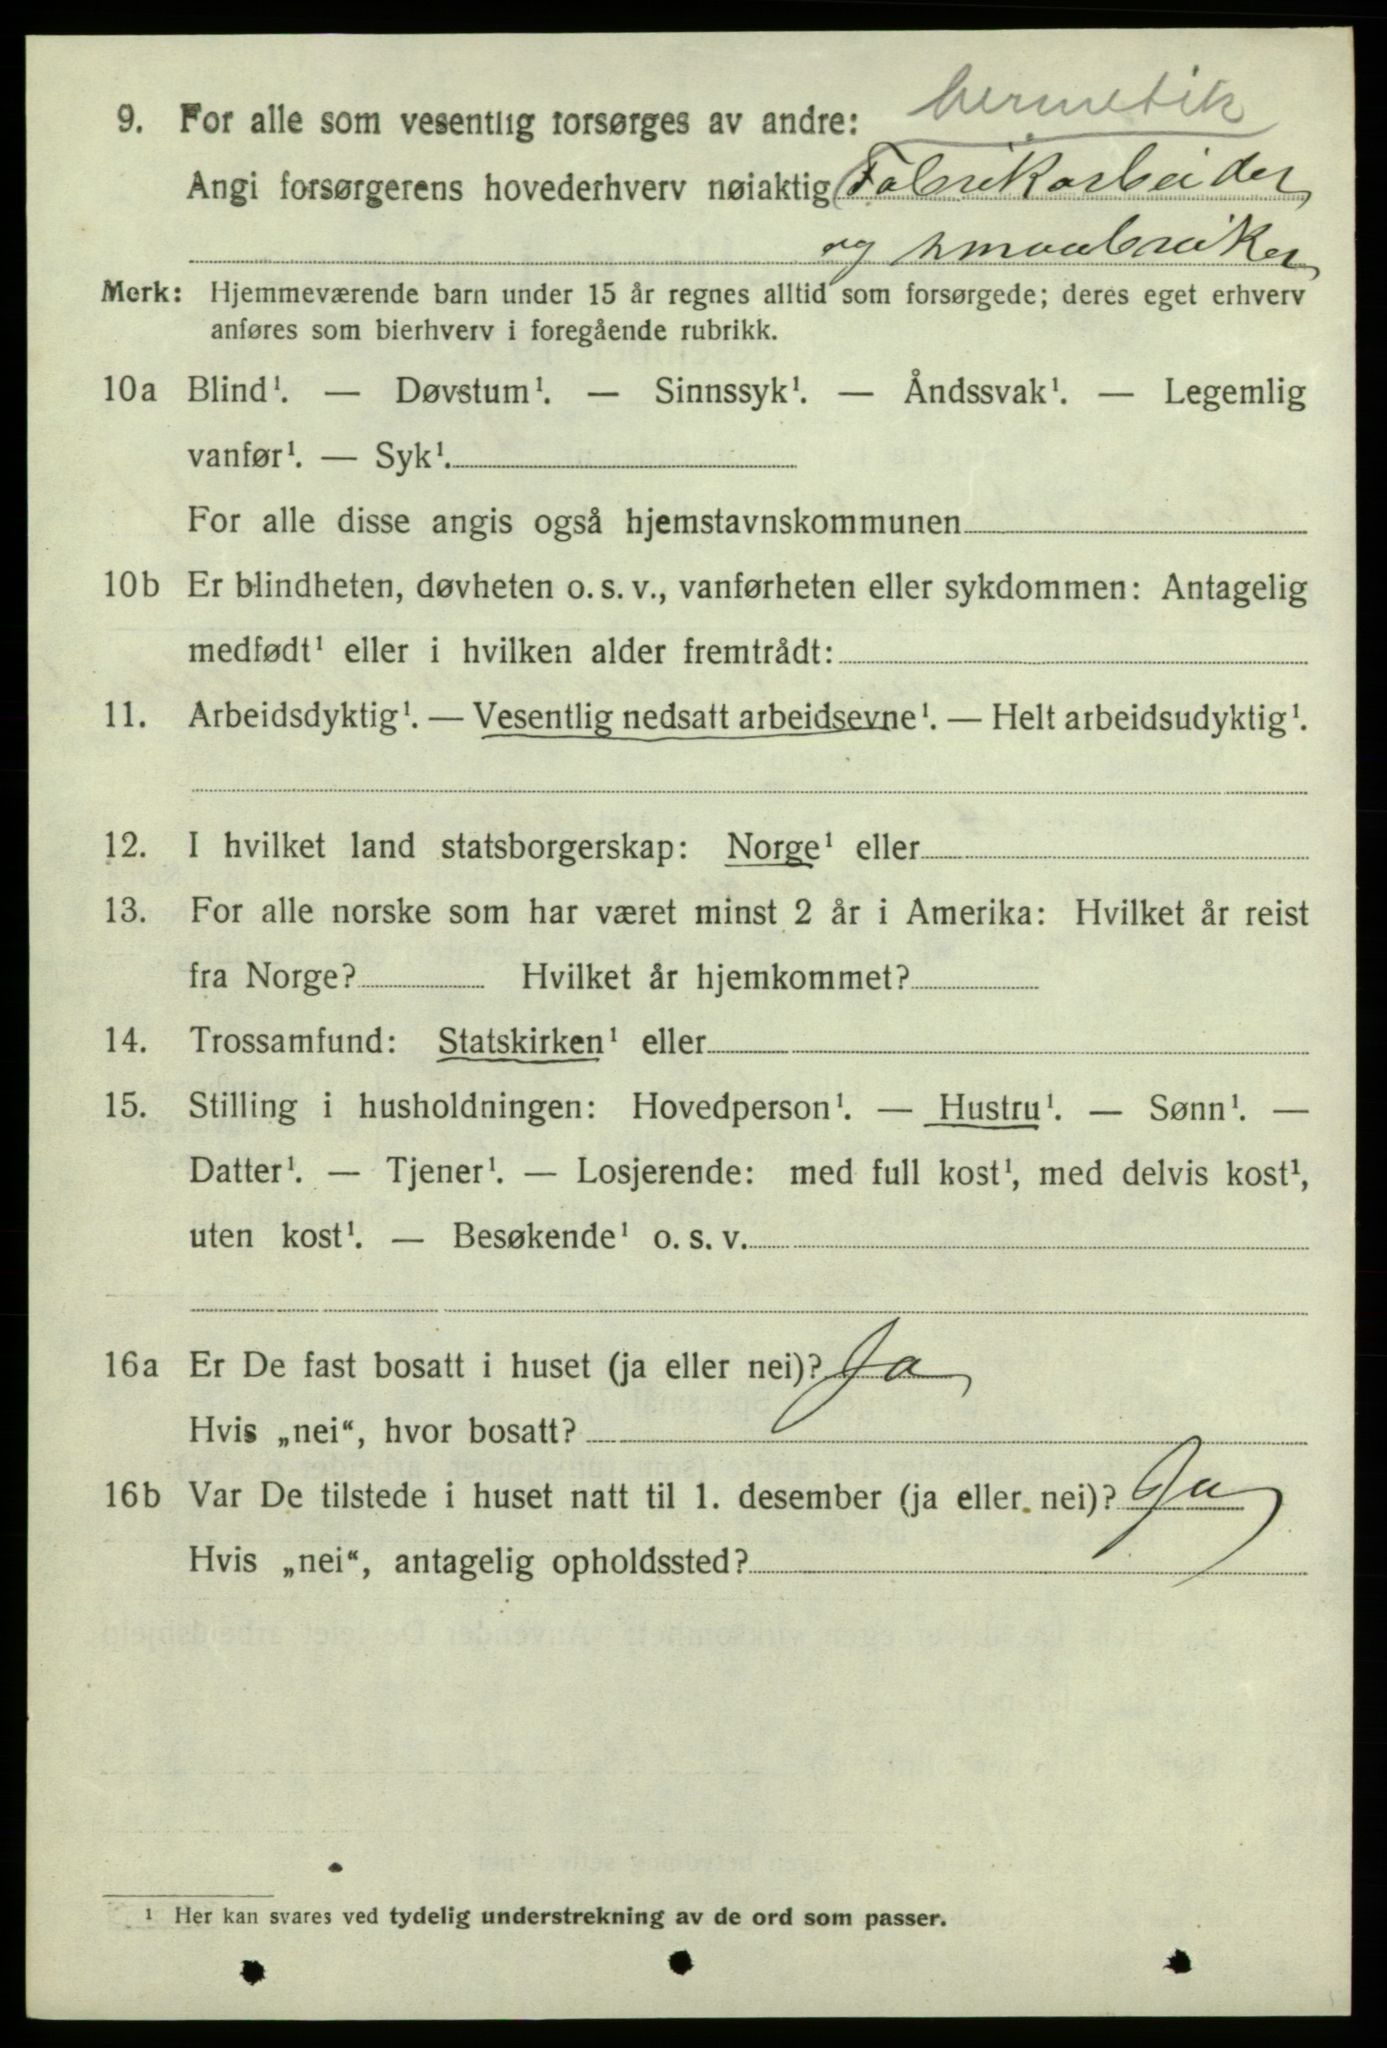 hermetik
9. For alle som vesentlig forsørges av andre:
Angi forsørgerens hovederhverv nøiaktig Fabrikarbeider
og smaabruker
Merk: Hjemmeværende barn under 15 år regnes alltid som forsørgede; deres eget erhverv
anføres som bierhverv i foregående rubrikk.
10a Blind¹. — Døvstum¹. — Sinnssyk¹. — Åndssvak¹. — Legemlig
vanfør¹. — Syk¹.
For alle disse angis også hjemstavnskommunen
10b Er blindheten, døvheten o. s. v., vanførheten eller sykdommen: Antagelig
medfødt¹ eller i hvilken alder fremtrådt:
11. Arbeidsdyktig¹. — Vesentlig nedsatt arbeidsevne¹. — Helt arbeidsudyktig¹.
12. I hvilket land statsborgerskap: Norge¹ eller
13. For alle norske som har været minst 2 år i Amerika: Hvilket år reist
fra Norge? Hvilket år hjemkommet?
14. Trossamfund: Statskirken¹ eller
15. Stilling i husholdningen: Hovedperson¹. — Hustru¹. — Sønn¹. —
Datter¹. — Tjener¹. — Losjerende: med full kost¹, med delvis kost¹,
uten kost¹. — Besøkende¹ o. s. v.
16a Er De fast bosatt i huset (ja eller nei)? Ja
Hvis „nei“, hvor bosatt?
16b Var De tilstede i huset natt til 1. desember (ja eller nei)? Ja
Hvis „nei“, antagelig opholdssted?
¹ Her kan svares ved tydelig understrekning av de ord som passer.